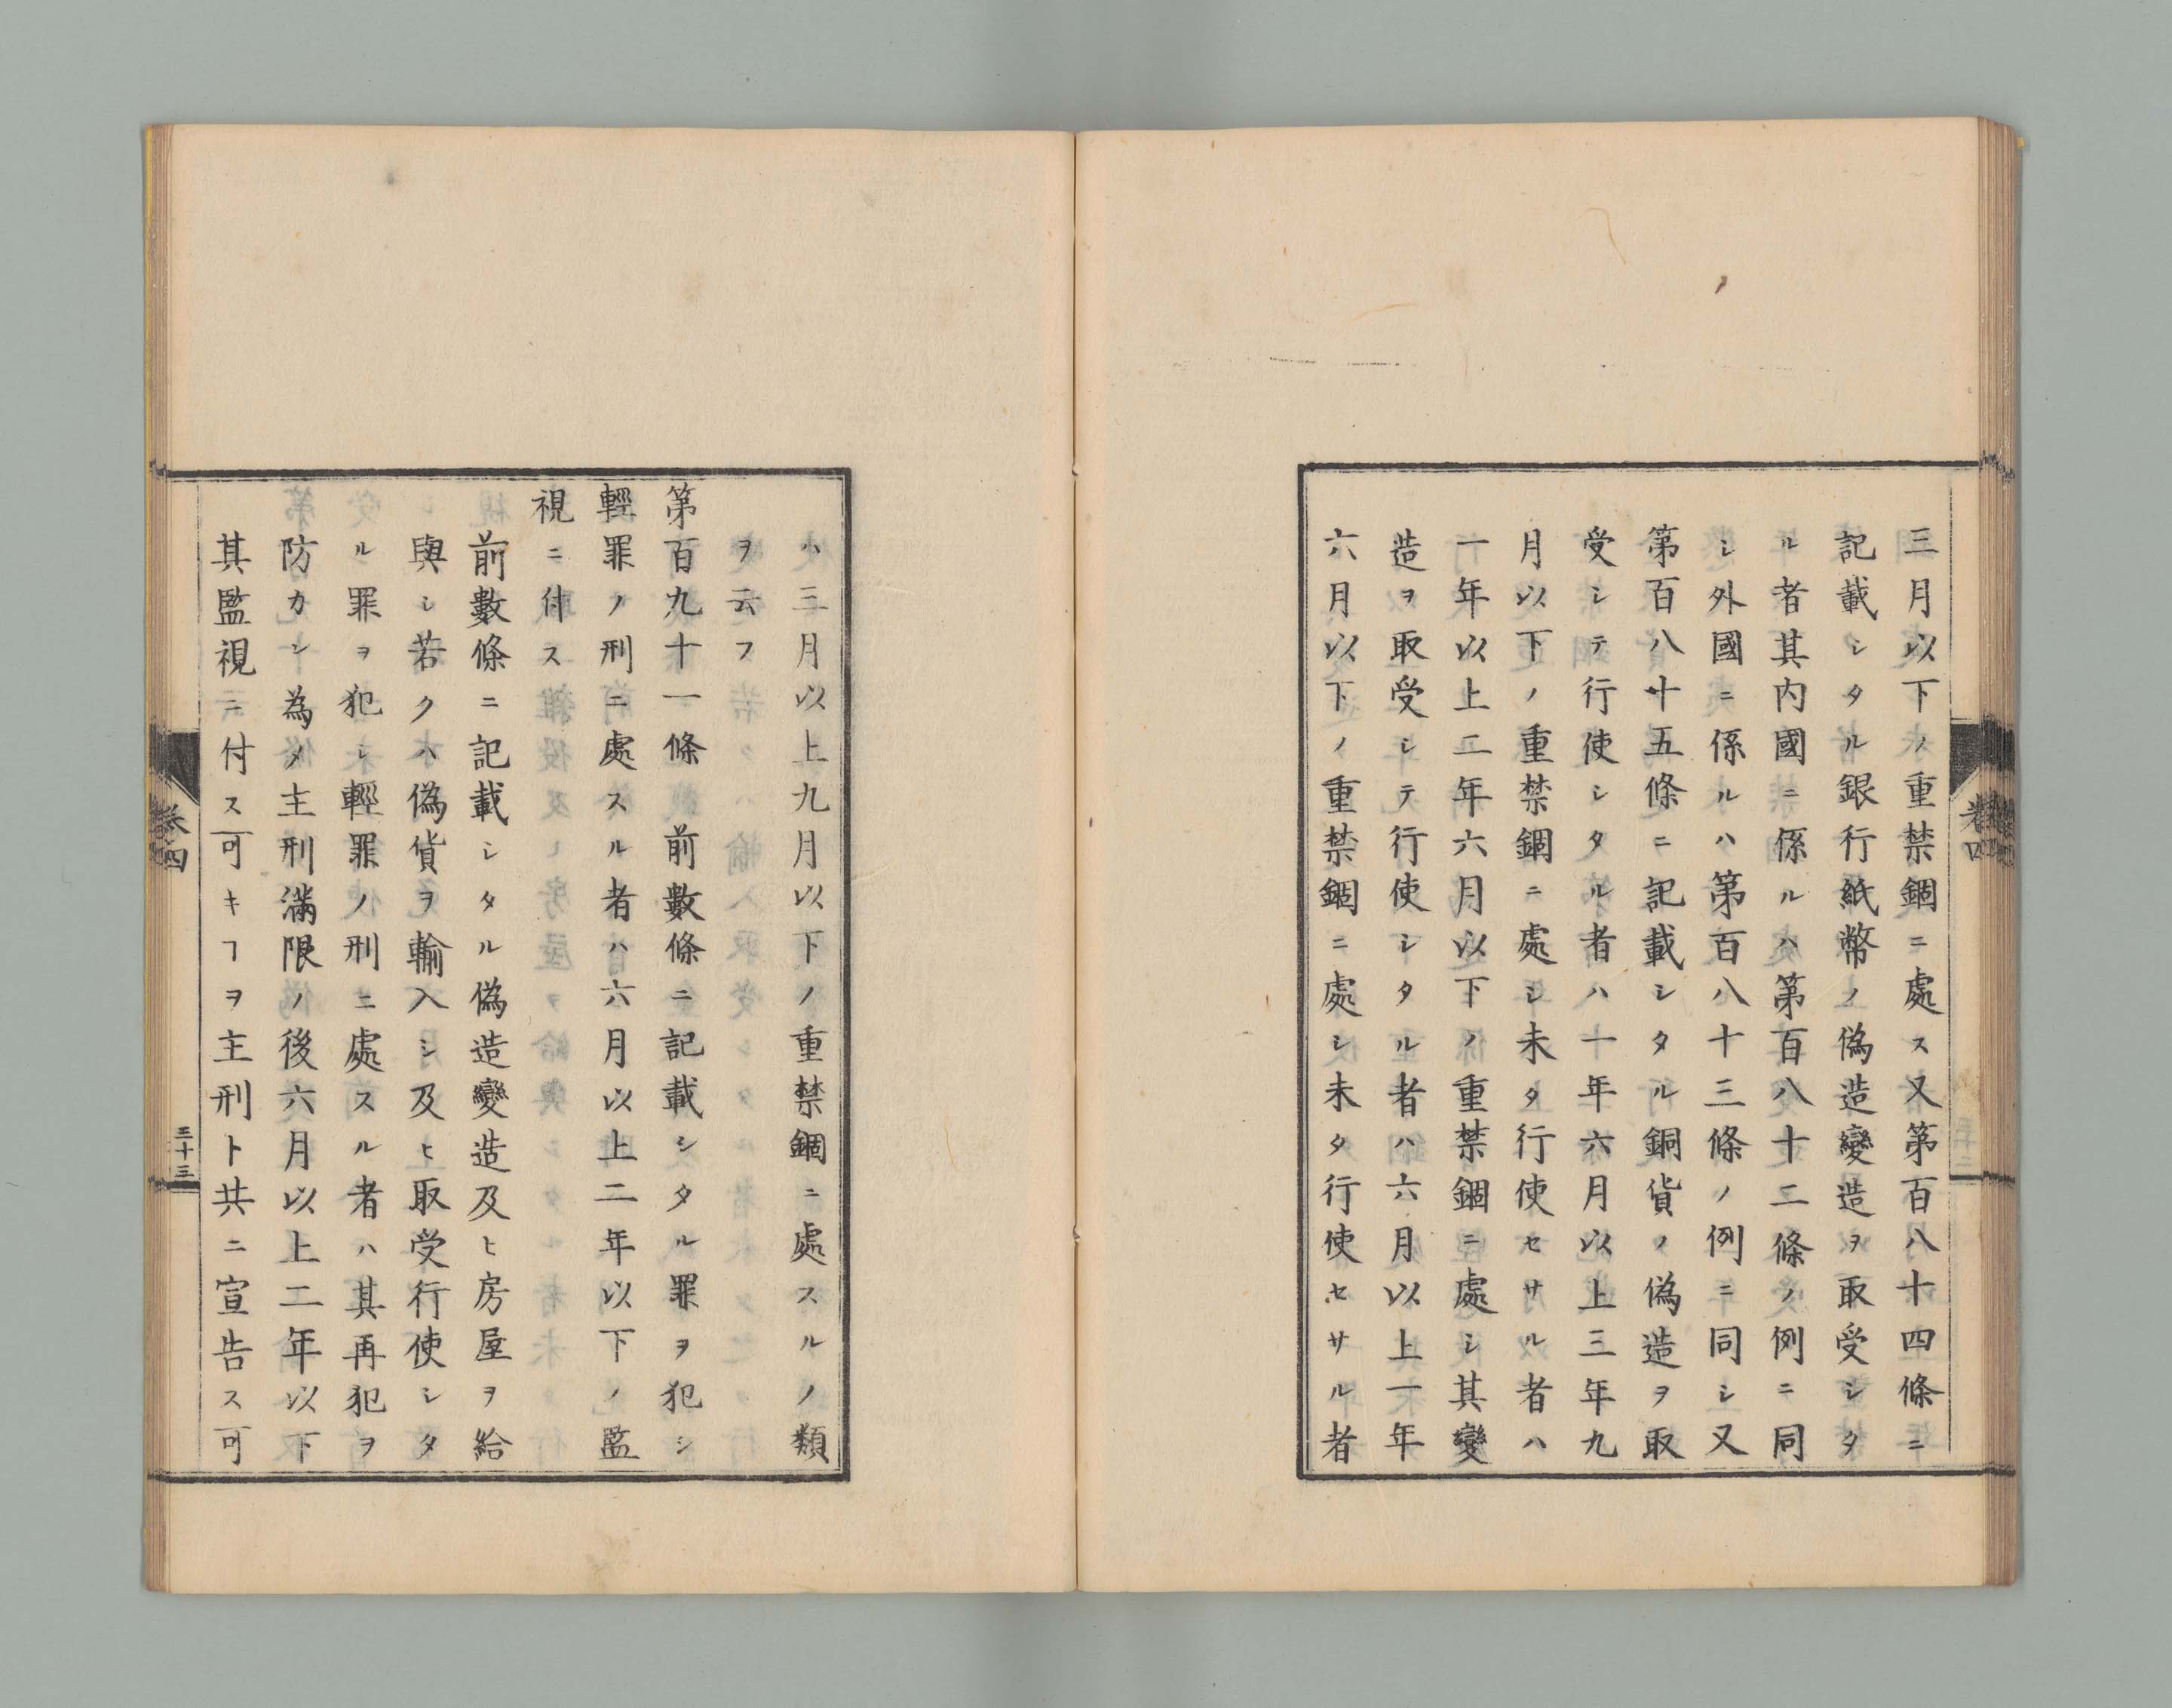 三月以下ノ重禁錮ニ處ス又第百八十四條ニ
記載シタル銀行紙幣ノ偽造變造ヲ取受シタ
ル者其内國ニ係ルハ第百八十二條ノ例ニ同
シ外國ニ係ルハ第百八十三條ノ例ニ同シ又
第百八十五條ニ記載シタル銅貨ノ偽造ヲ取
受シテ行使シタル者ハ十一年六月以上三年九
月以下ノ重禁錮ニ處シ未タ行使セサル者ハ
一年以上二年六月以下ノ重禁錮ニ處シ其變
造ヲ取受シテ行使シタル者ハ六月以上一年
六月以下ノ重禁錮ニ處シ未タ行使セサル者
卷四
ハ三月以上九月以下ノ重禁錮ニ處スルノ類
ヲ云フ
第百九十一條 前數條ニ記載シタル罪ヲ犯シ
輕罪ノ刑ニ處スル者ハ六月以上二年以下ノ監
視ニ付ス
前數條ニ記載シタル偽造變造及ヒ房屋ヲ給
與シ若クハ偽貨ヲ輸入シ及ヒ取受行使シタ
ル罪ヲ犯シ輕罪ノ刑ニ處スル者ハ其再犯ヲ
防カン為メ主刑滿限ノ後六月以上二年以下
其監視ニ付ス可キヿヲ主刑ト共ニ宣告ス可
卷四
三十三